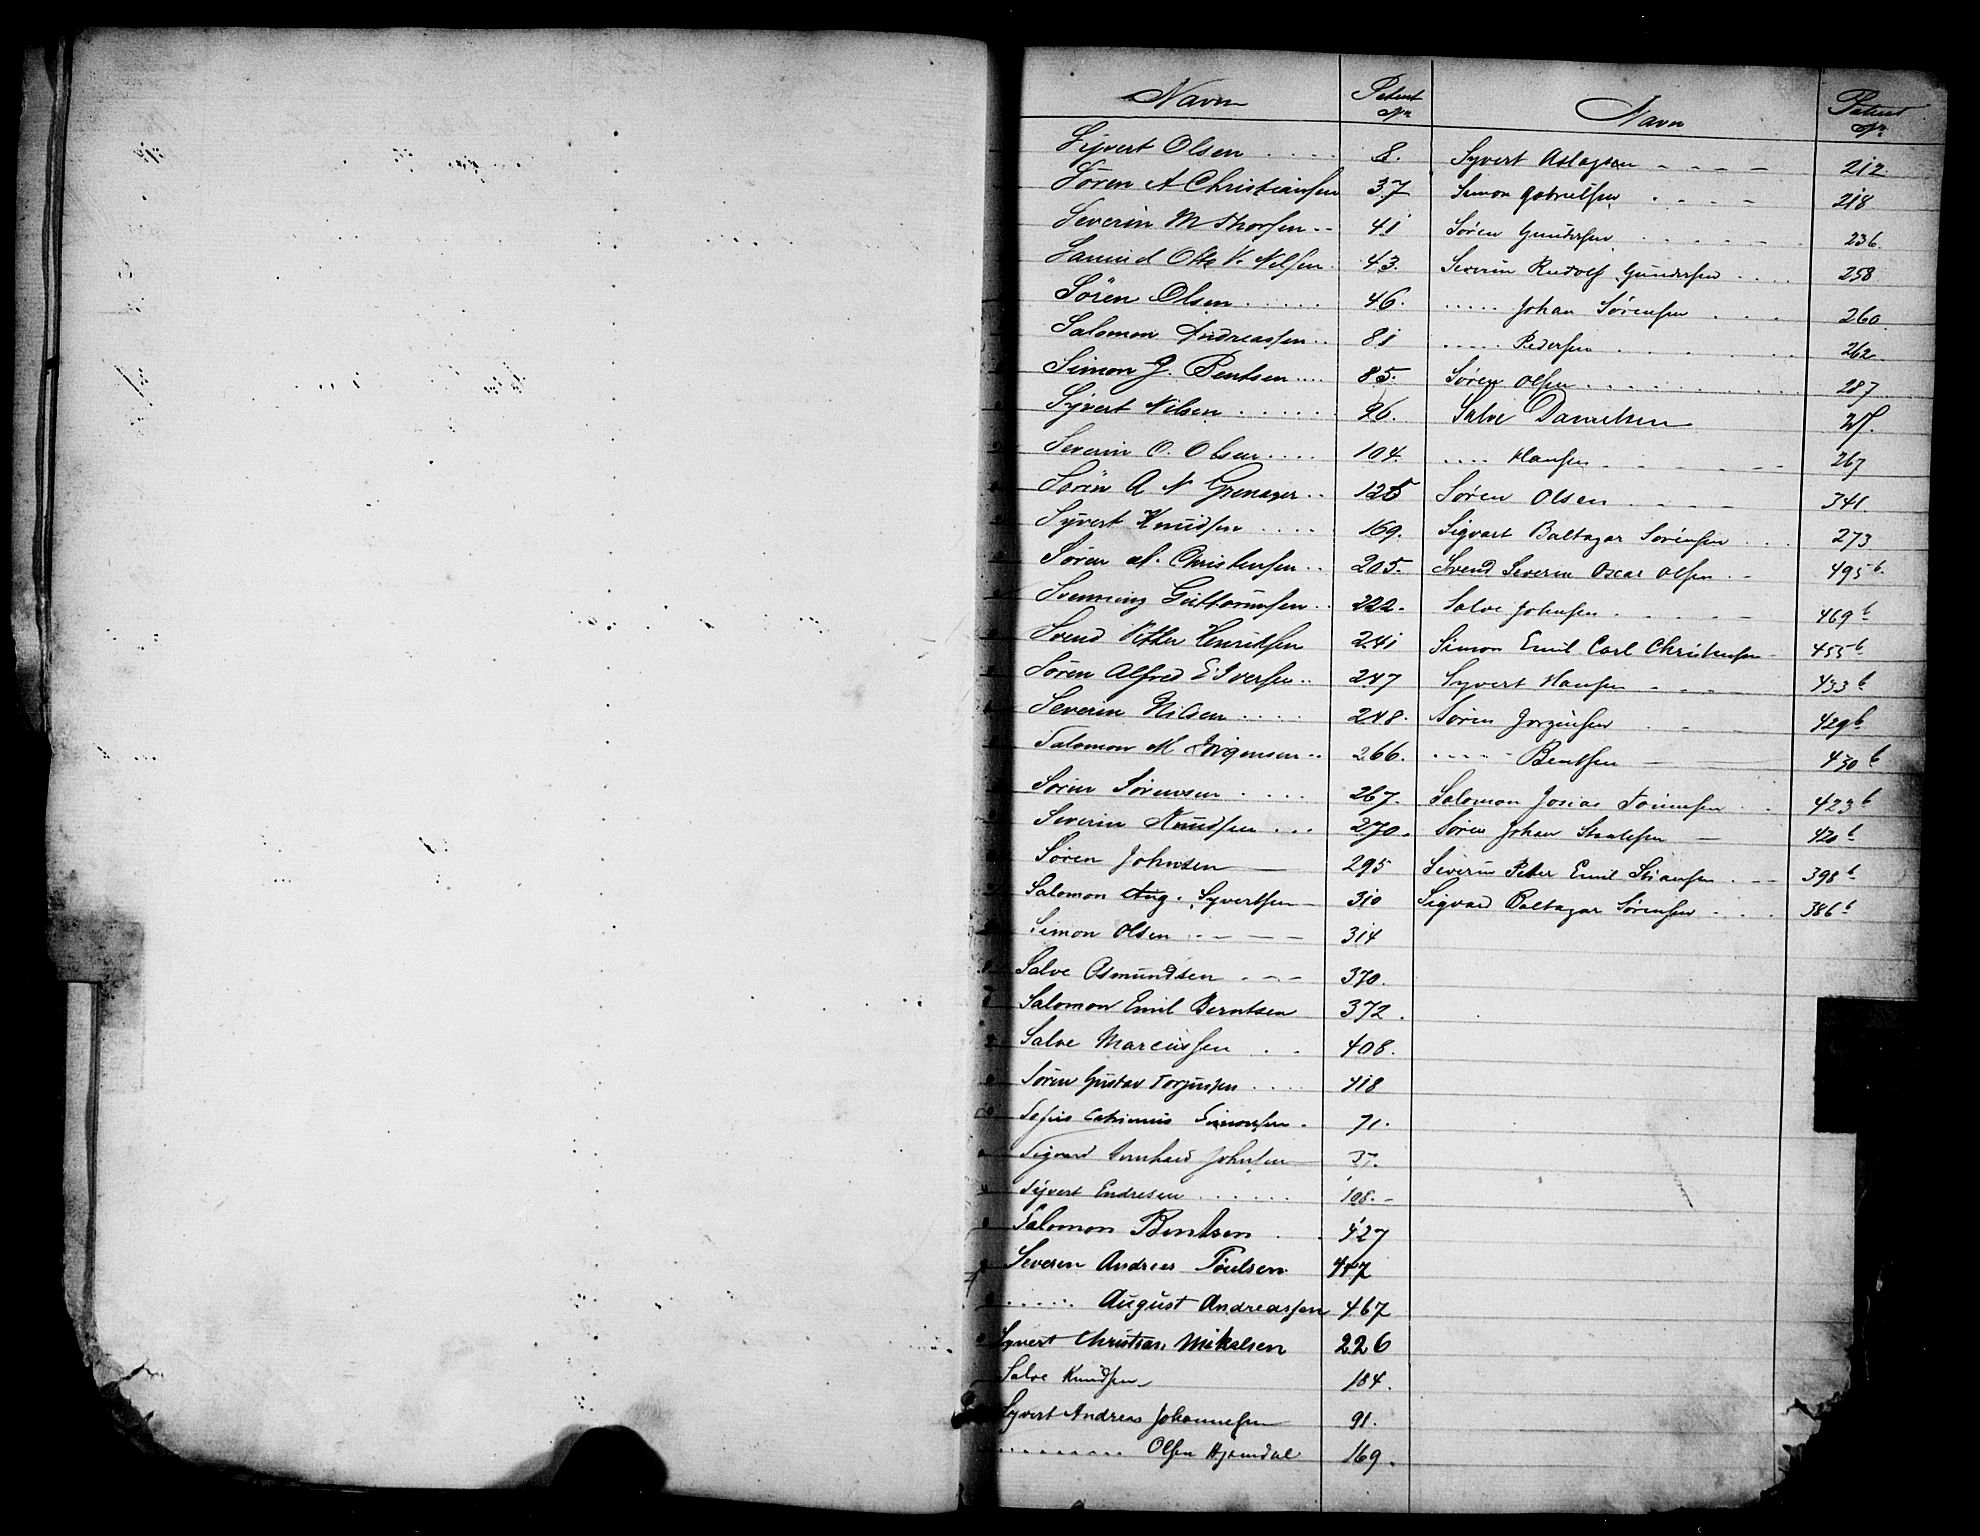 Navn Patent Nr
Syvert Olsen . . . . 8.
Sören A Christiansen 37
Severin M Thorsen .. 41
Samuel Otto V. Nilsen . 43.
Sören Olsen . . . . . 46.
Salomon Andreassen .. 81
Simon J. Bentsen .... 85.
Syvert Nilsen . . . . . . 96.
Severin O. Olsen .... 104.
Sören A N Grenager .. 125
Syvert Knudsen . . . . . 169.
Sören A. Christensen .. 205.
Svenning Guttormsen .. 222.
Svend Peter Henriksen 241
Sören Alfred E Iversen .. 247
Severin Nilsen . . . . 248.
Salomon M Jörgensen .. 266.
Sören Sörensen . . . . 267.
Severin Knudsen ... 270.
Sören Johnsen — 295
Salomon Aug. Syvertsen — 310
Simon Olsen . - — — 314
Salve Osmundsen . - - - 370.
Salomon Emil Berntsen 372.
Salve Marcussen . . 408.
Sören Gustav Torjussen .... 418
Sofus Catrinus Simonsen . 71.
Sigvard Bernhard Johnsen — 37.
Syvert Endresen . . . . . . 108. -
Salomon Bentsen . . 427
Severin Andreas 447
. . . . . August Andreassen 467
Syvert Christian Mikalsen 226
Salve Knudsen 184.
Syvert Andreas Johannesen 91.
. . . . . . . . . Olsen Hjemdal 169.
Navn Patent Nr
Syvert Aslagsen - - - - 212
Simon Gabrielsen . - - - 218
Søren Gundersen . . . . . . 236.
Severin Rudolf Gundersen . . . . 258
. . . . . Johan Sørensen . . . 260.
. . . . . Pedersen . . . . . . 262
Søren Olsen . . . . . . . . 287
Salve Danielsen
. . . . Hansen . . - - - - 267
Søren Olsen . - - - 341.
Sigvart Baltazar Sørensen . . . 273
Svend Severin Oscar Olsen . - 495 b.
Salve Johnsen . . - - - - 469 b
Simon Emil Carl Christensen - 455 b
Syvert Hansen - - - - 433 b
Søren Jorgensen . - 429 b
. - - - Bentsen — — 430 b
Salomon Josias . . 423 b
Søren Johan — 420 b
Severin Peter Emil Stiansen . - - 398 b
Sigvard Baltazar Sørensen . . . 386 b